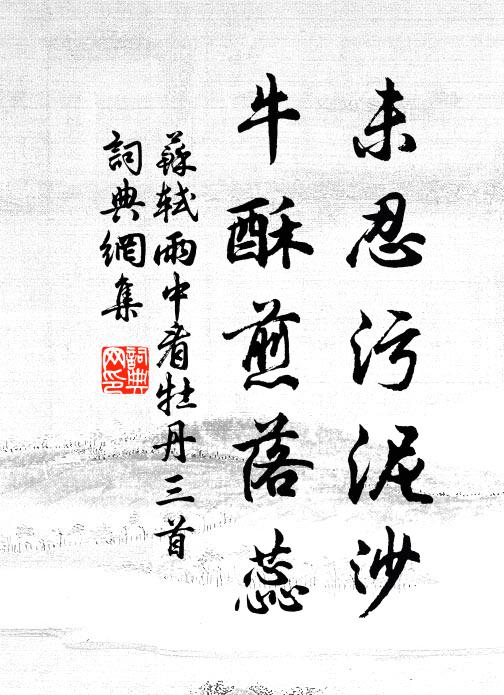 未忍污泥沙
牛酥煎落蕊
蘇軾雨中看牡丹三首
詞典網集
詞典网印